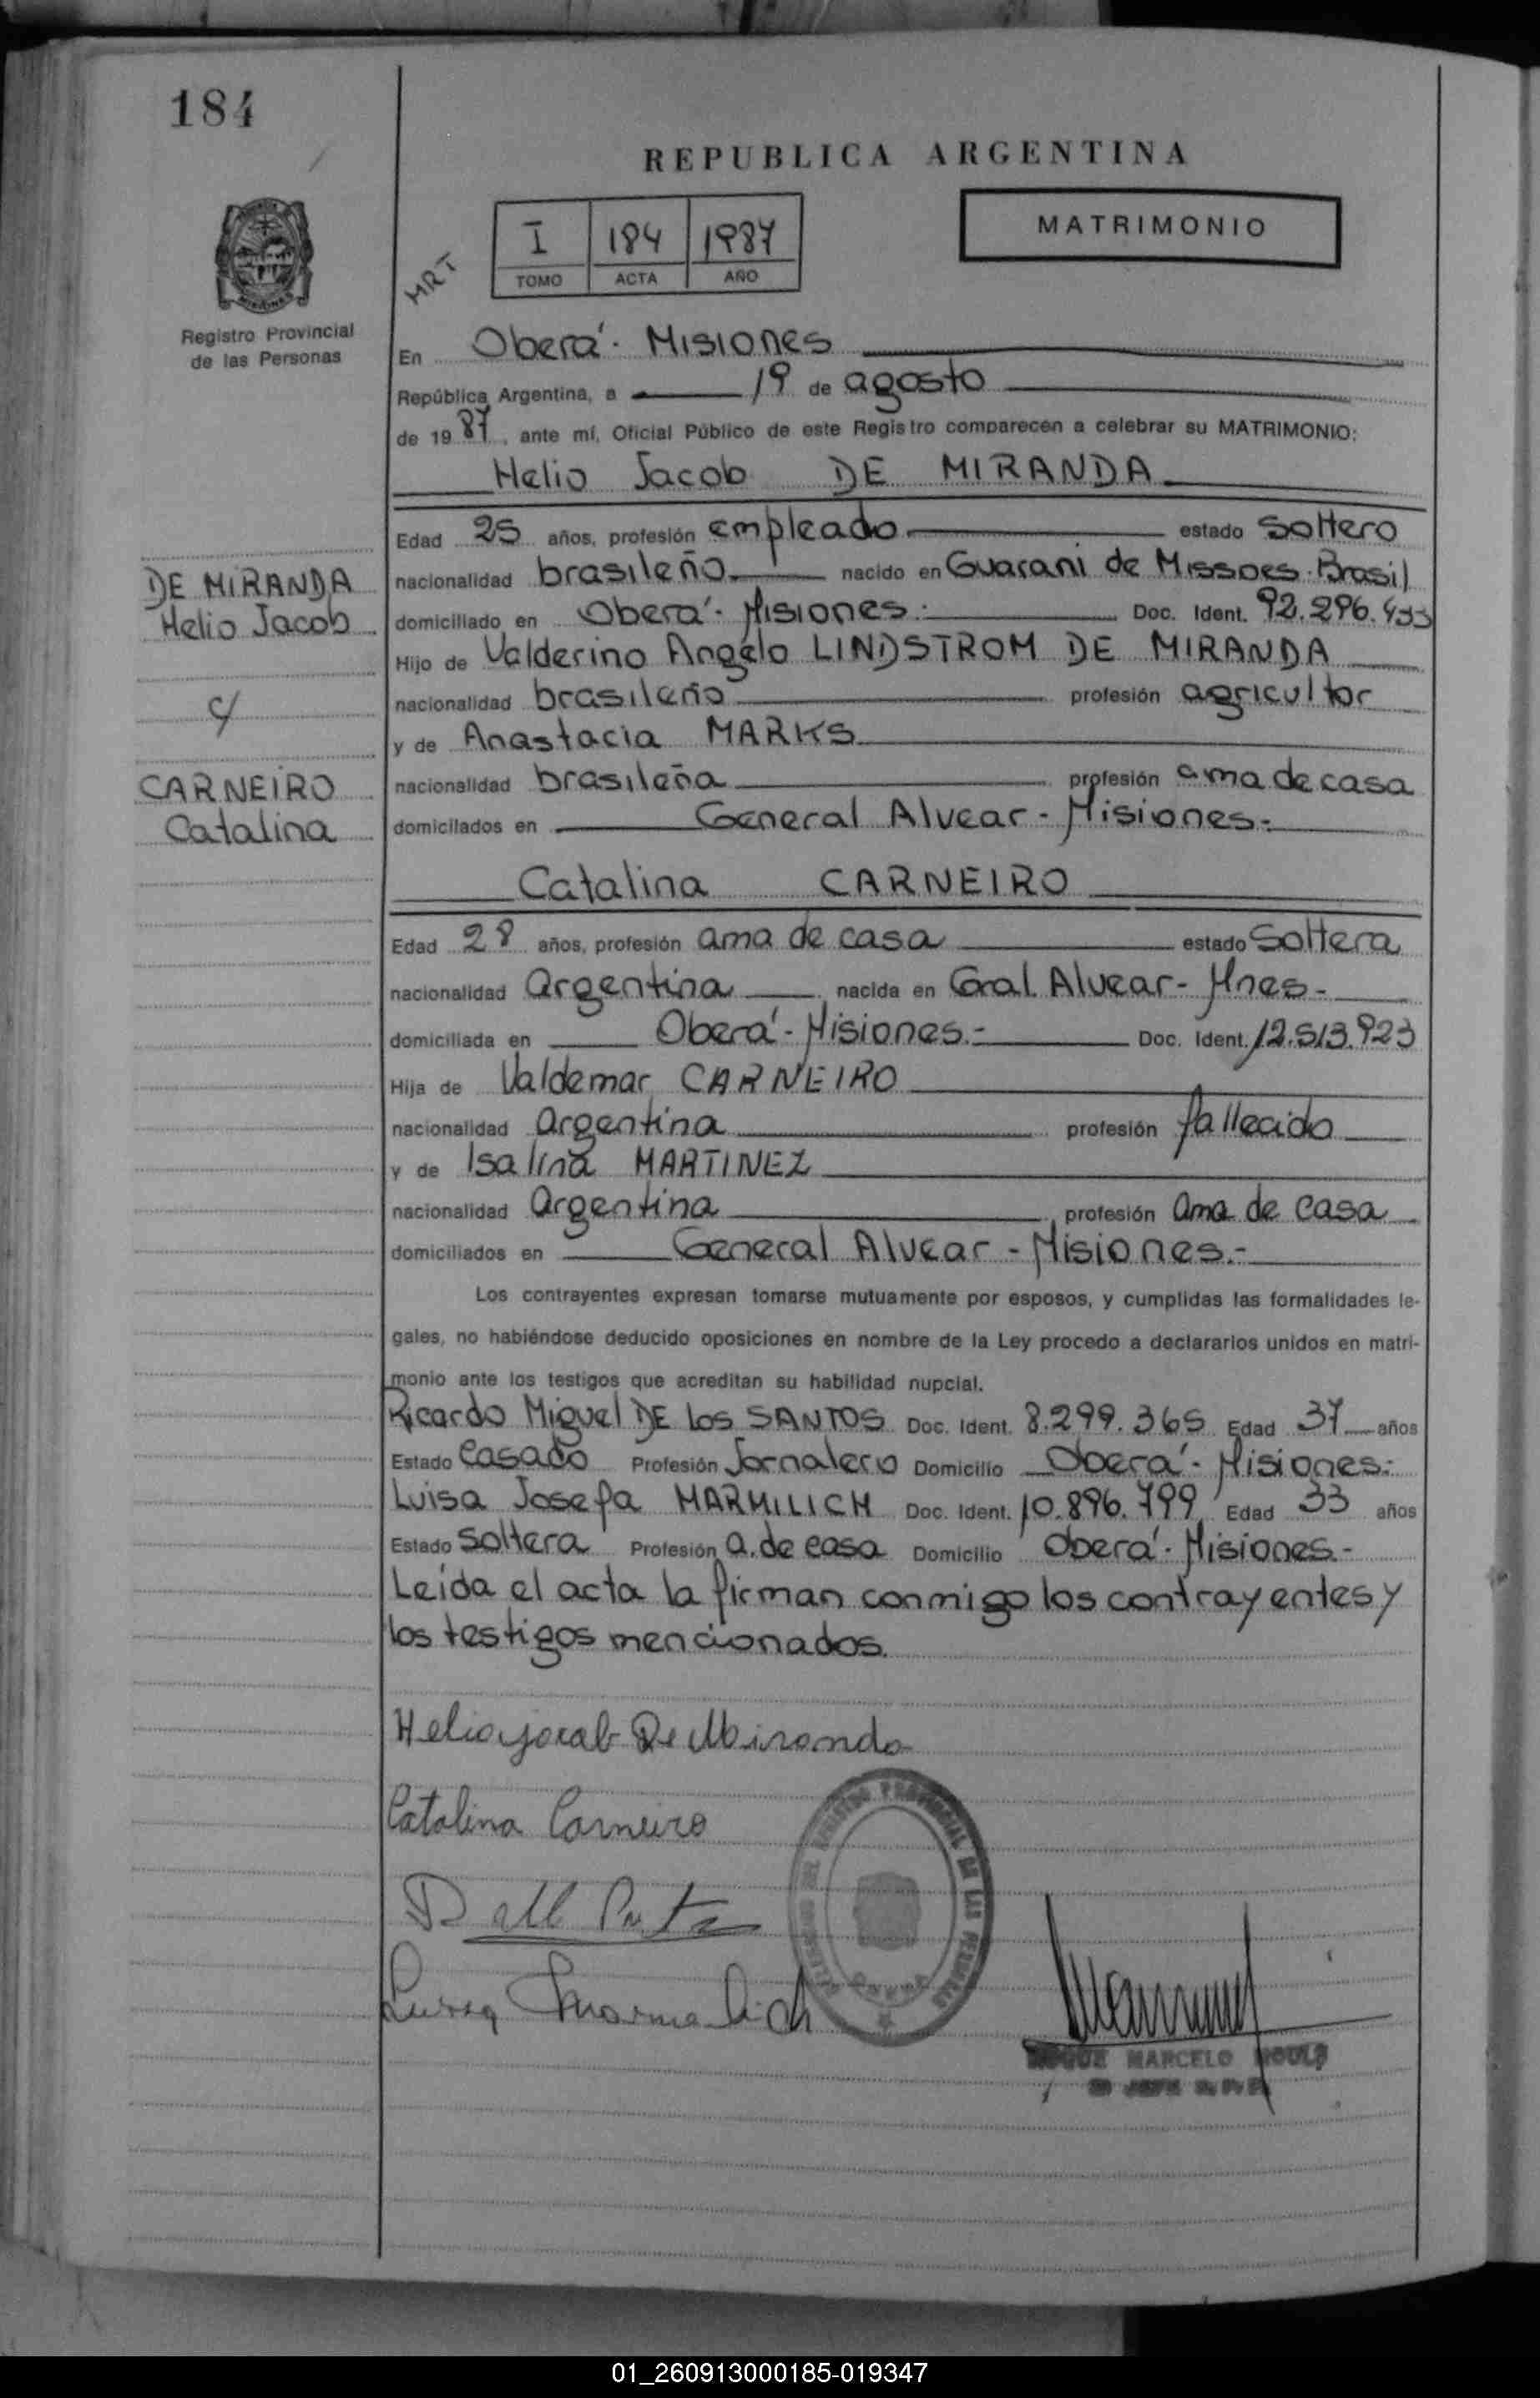 184
REPUBLICA ARGENTINA
MATRIMONIO
I 184 1987
TOMO ACTA AÑO
MRT
Registro Provincial
de las Personas
En Oberá - Misiones
República Argentina, a 19 de agosto
de 1987, ante mí, Oficial Público de este Registro comparecen a celebrar su MATRIMONIO:
Helio Jacob DE MIRANDA
Edad 25 años, profesión empleado estado Soltero
nacionalidad brasileño nacido en Guarani de Missoes. Brasil
domiciliado en Oberá - Misiones.- Doc. Ident. 92.296.433
Hijo de Valderino Angelo LINDSTROM DE MIRANDA
nacionalidad brasileño profesión agricultor
y de Anastacia MARKS
nacionalidad brasileña profesión ama de casa
domicilados en General Alvear - Misiones.-
DE MIRANDA
Helio Jacob
c/
CARNEIRO
Catalina
Catalina CARNEIRO
Edad 28 años, profesión ama de casa estado Soltera
nacionalidad Argentina nacida en Gral. Alvear - Mnes -
domiciliada en Oberá - Misiones.- Doc. Ident. 12.513.923
Hija de Valdemar CARNEIRO
nacionalidad argentina profesión fallecido
y de Isalina MARTINEZ
nacionalidad Argentina profesión Ama de casa
domiciliados en General Alvear - Misiones.-
Los contrayentes expresan tomarse mutuamente por esposos, y cumplidas las formalidades le-
gales, no habiéndose deducido oposiciones en nombre de la Ley procedo a declararlos unidos en matri-
monio ante los testigos que acreditan su habilidad nupcial.
Ricardo Miguel DE Los SANTOS Doc. Ident. 8.299.365 Edad 37 años
Estado Casado Profesión Jornalero Domicilio Oberá - Misiones.-
Luisa Josefa MARMILICH Doc. Ident. 10.896.799 Edad 33 años
Estado Soltera Profesión a. de casa Domicilio Oberá - Misiones.-
Leída el acta la firman conmigo los contrayentes y
los testigos mencionados.
Helio jocab De Miranda
Catalina Carneiro
Luisa Marmelich
PROVINCIAL DE LAS PERSONAS
MARCELO
01_260913000185-019347